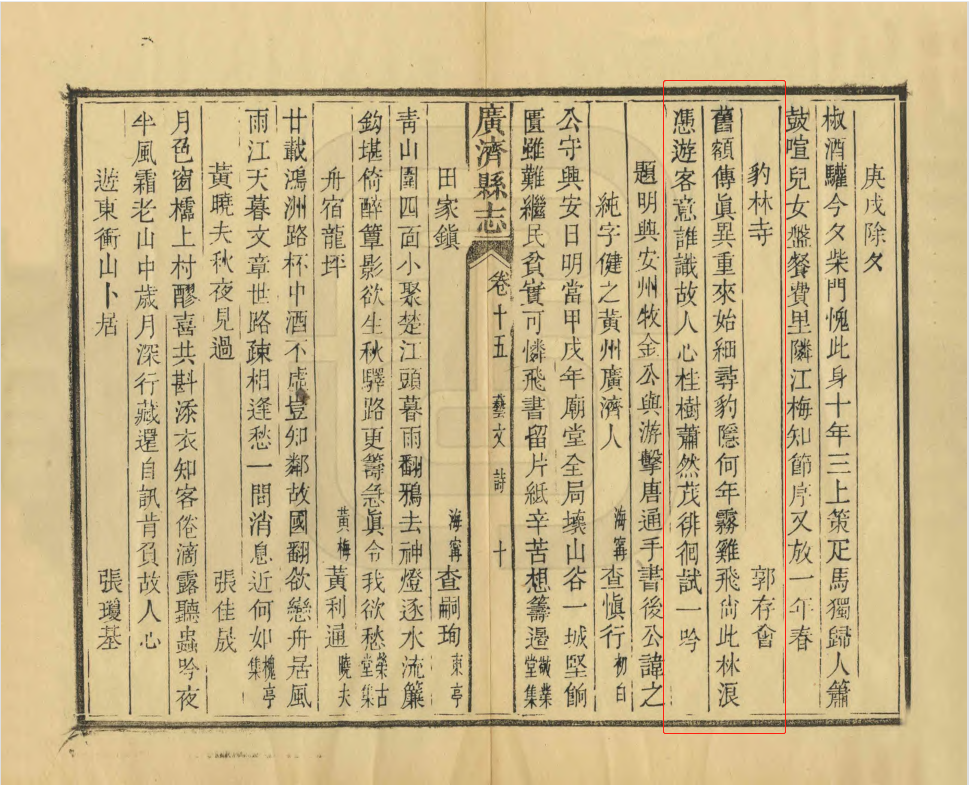 庚戌除夕
椒酒驩今夕柴門愧此身十年三上策疋馬獨歸人簫
鼓喧兒女盤餐費里隣江梅知節序又放一年春
豹林寺 郭存會
舊額傳眞異重來始細尋豹隱何年霧雞飛尙此林浪
憑遊客意誰識故人心桂樹蕭然茂徘徊試一吟
題明興安州牧金公與游擊唐通手書後公諱之
純字健之黃州廣濟人 海寗查愼行初白
公守興安日明當甲戌年廟堂全局壞山谷一城堅餉
匱雖難繼民貧實可憐飛書留片紙辛苦想籌邊敬業堂集
廣濟縣志 卷十五 藝文 詩 十
田家鎭 海寗查嗣珣東亭
靑山圍四面小聚楚江頭暮雨翻鴉去神燈逐水流簾
鈎堪倚醉簟影欲生秋驛路更籌急眞令我欲愁榮古堂集
舟宿龍坪 黃梅黃利通曉夫
廿載鴻洲路杯中酒不虛豈知鄰故國翻欲戀舟居風
雨江天暮文章世路疎相逢愁一問消息近何如槐亭集
黃曉夫秋夜見過 張佳晟
月色窗櫺上村醪喜共斟添衣知客倦滴露聽蟲吟夜
半風霜老山中歲月深行藏還自訊肯負故人心
遊東衝山卜居 張瓊基